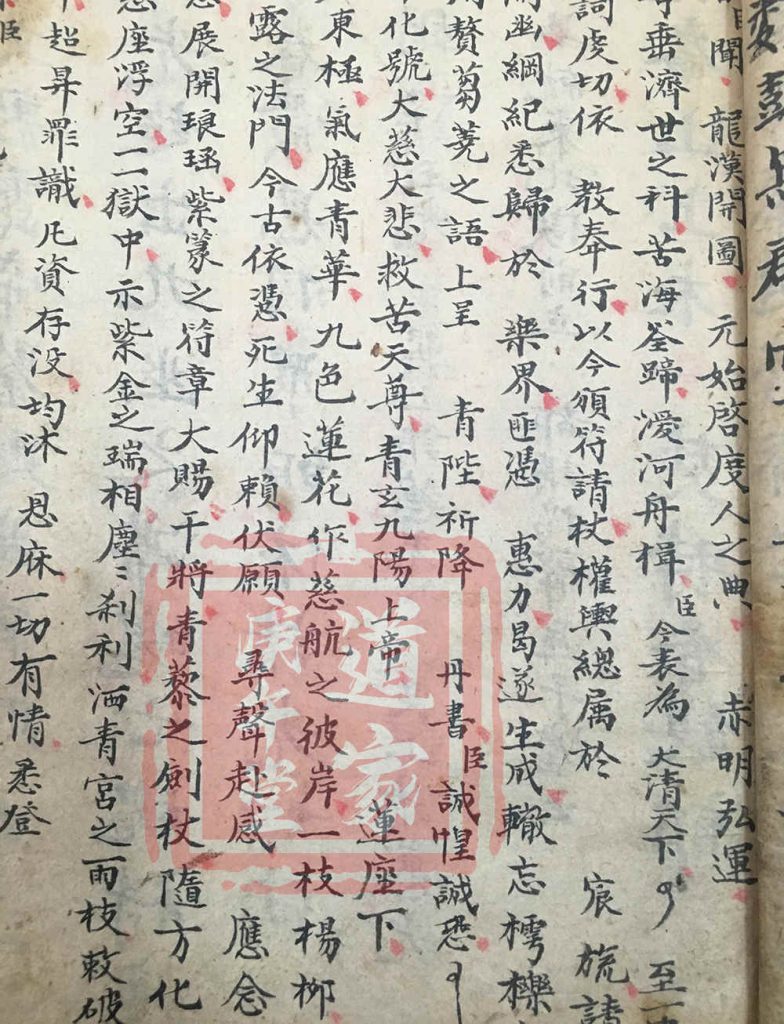 聞 龍漢開圖 元始啓度人之典 赤明弘運
垂濟世之科 苦海筌蹄 愛河舟楫 臣今表為 大清天下 至
詞虔切依 教奉行以今頒符請杖權輿總属於 宸旒請
幽綱紀悉歸於 樂界匪憑 惠力曷遂生成輙忘樗櫟
贅蒭蕘之語上呈 青陛祈降 丹書臣誠惶誠恐
化號大慈大悲救苦天尊青玄九陽上帝 蓮座下
東極氣應青華九色蓮花作慈航之彼岸一枝楊柳
露之法門今古依憑死生仰賴伏願 尋聲赴感 應念
展開琅函紫篆之符章大賜干將青藜之劍杖隨方化
座浮空一一獄中示紫金之瑞相塵〻刹利洒青宮之雨枝敕破
超昇罪識凡資存没均沐 恩庥一切有情悉登
臣
道家
庚辛堂